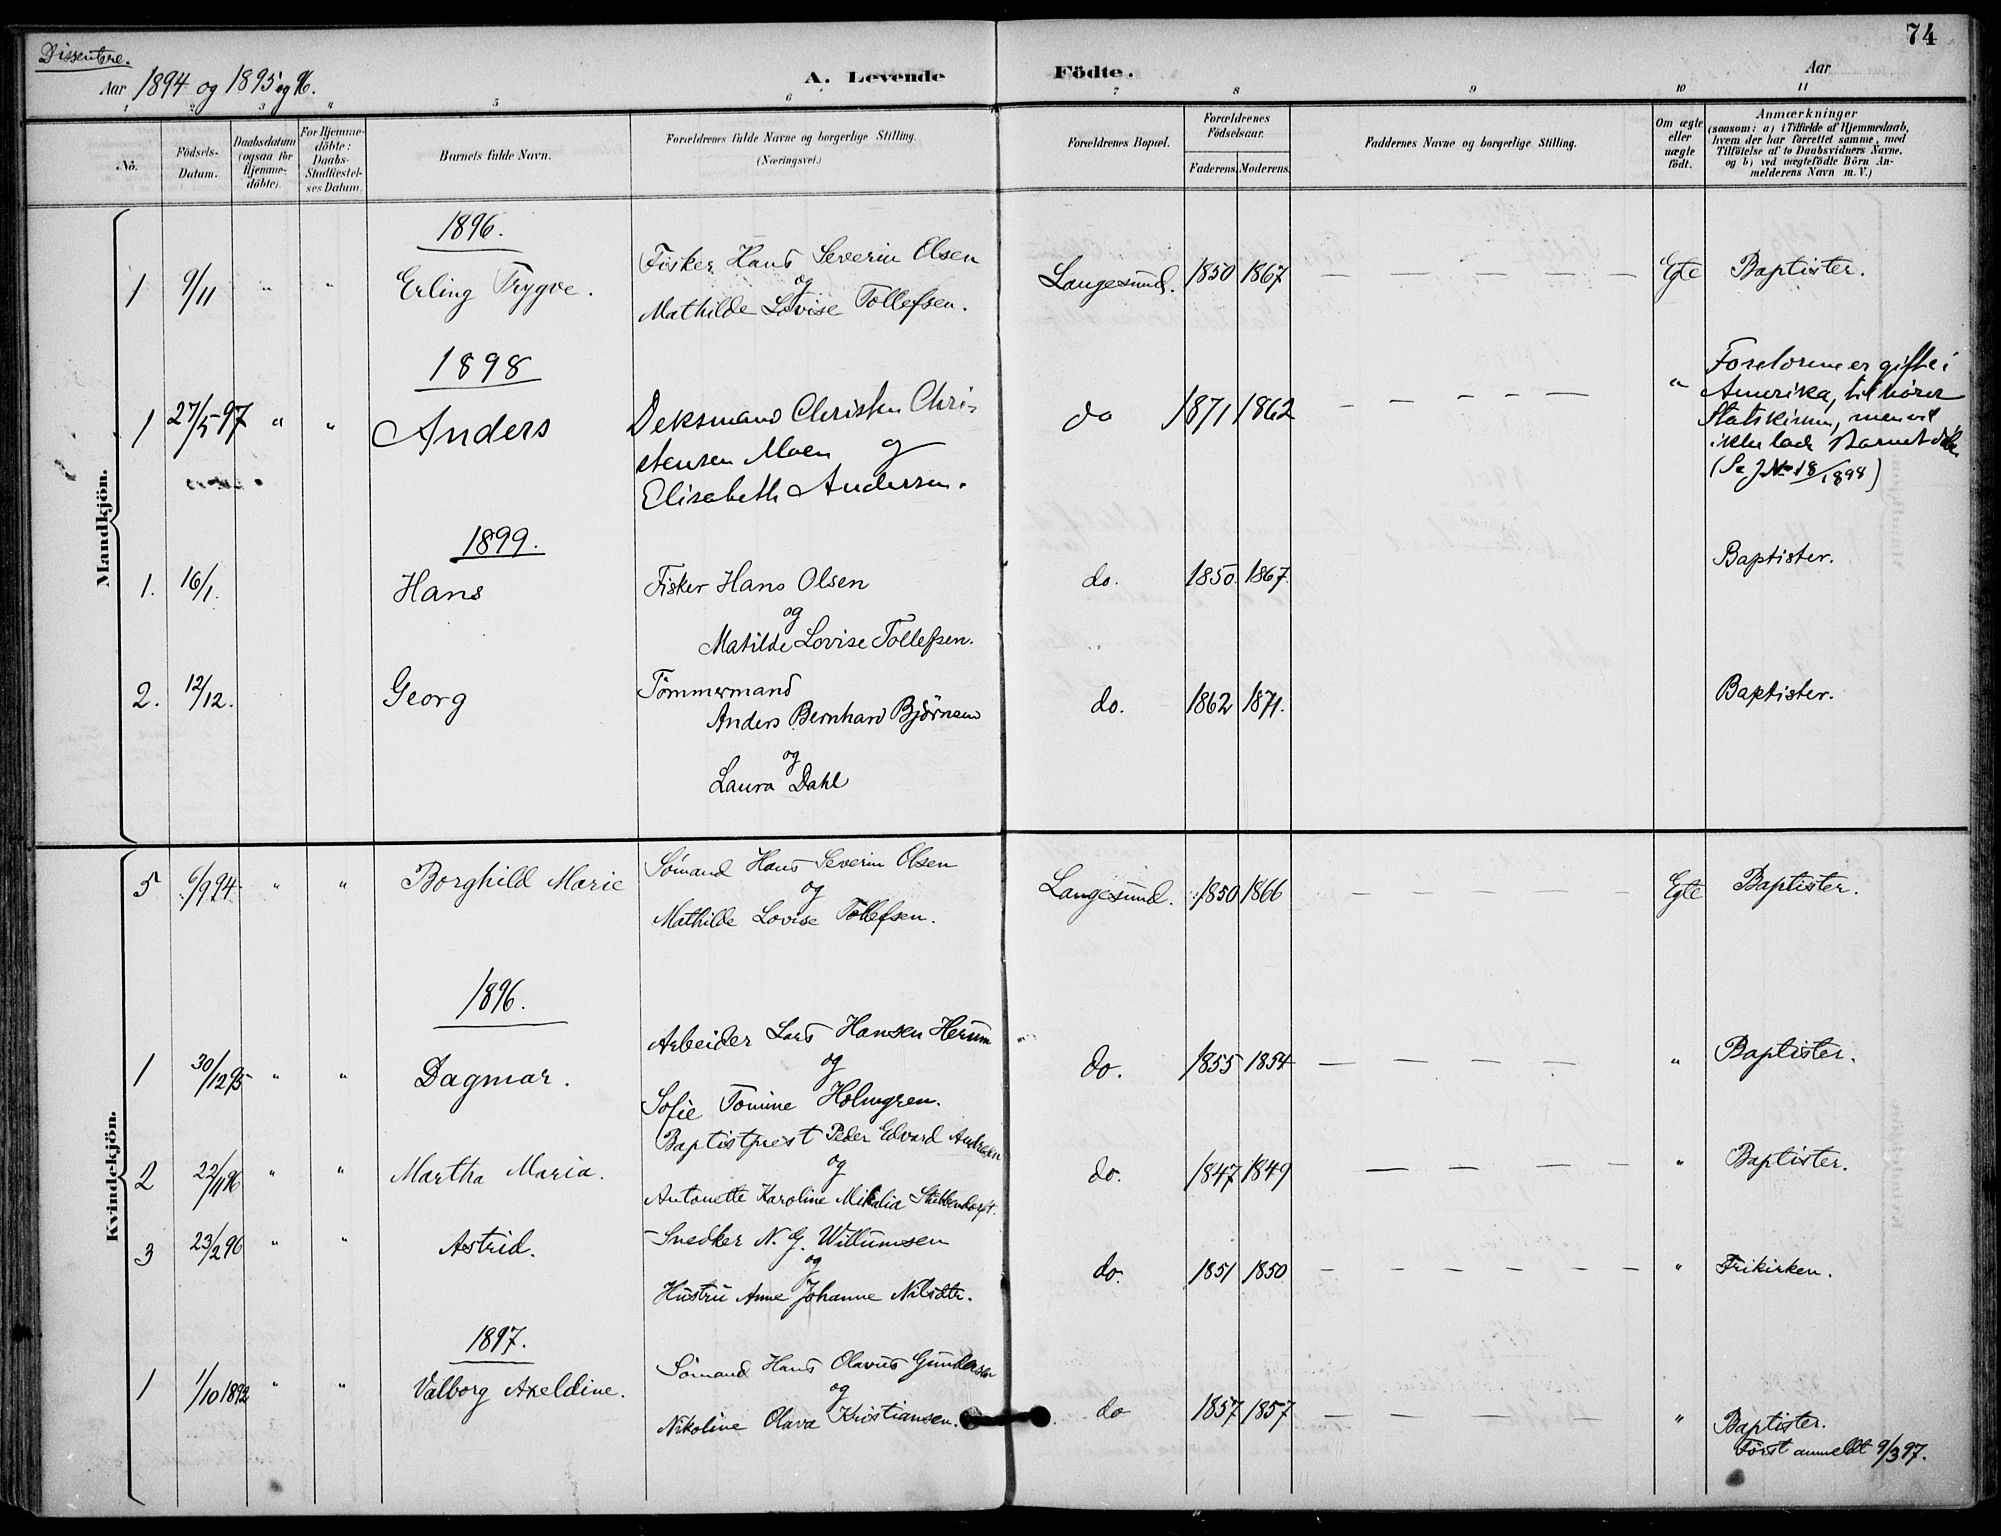 Dissentere.
74
Aar 1894 og 1895 og 96.
A. Levende Födte.
Aar
1 2 3 " 5 6 7 8 9 10 11
No.
Födsels-Datum.
Daabsdatum (ogsaa för Hjemme-döbte).
For Hjemme-döbte: Daabs-Stadfæstel-ses Datum.
Barnets fulde Navn.
Forældrenes fulde Navne og borgerlige Stilling.
(Næringsvei.)
Forældrenes Bopæl.
Forældrenes Födselsaar.
Faderens. Moderens.
Faddernes Navne og borgerlige Stilling.
Om ægte eller uægte födt.
Anmærkninger
(saasom: a) i Tilfælde af Hjemmedaab,
hvem der har forrettet samme, med
Tilföielse af to Daabsvidners Navne,
og b) ved uægtefödte Börn An-
melderens Navn m. V.)
Mandkjön.
1896.
1 9/11 " " Erling Trygve. Fisker Hans Severin Olsen
og
Mathilde Lovise Tollefsen. Langesund. 1850 1867 Egte Baptister.
1898
1 27/5 97 " " Anders Deksmand Christen Chri-
stensen Moen og
Elisabeth Andersen. do 1871 1862 " Forældrene er gifte i
Amerika, tilhører
Statskirken, men vil
ikke lade Barnet døbe
(Se J No 18/1898)
1899.
1. 16/1. Hans Fisker Hans Olsen
og
Matilde Lovise Tollefsen. do. 1850. 1867. Baptister.
2. 12/12. Georg Tömmermand
Anders Bernhard Björnsen
og
Laura Dahl do. 1862 1871. Baptister.
Kvindekjön.
5 6/9 94 " " Borghild Marie Sømand Hans Severin Olsen
og
Mathilde Lovise Tollefsen. Langesund. 1850 1866 Egte Baptister.
1896.
1 30/12 95 " " Dagmar. Arbeider Lars Hansen Herum
og
Sofie Tomine Holmgren. do. 1855 1854 " Baptister.
2 22/1 96 " " Martha Maria. Baptistprest Peder Edvard Andresen
og
Antonette Karoline Mikalia do. 1847 1849 " Baptister.
3 23/2 96 " " Astrid. Snedker N. G. Willumsen
og
Hustru Anne Johanne Nilsdtr. do. 1851 1850 " Frikirken.
1897.
1 1/10 1892 " " Valborg Axeldine. Sømand Hans Olavus Gundersen
og
Nikoline Olava Kristiansen. do 1857 1857 " Baptister.
Først anmeldt 9/3 97.